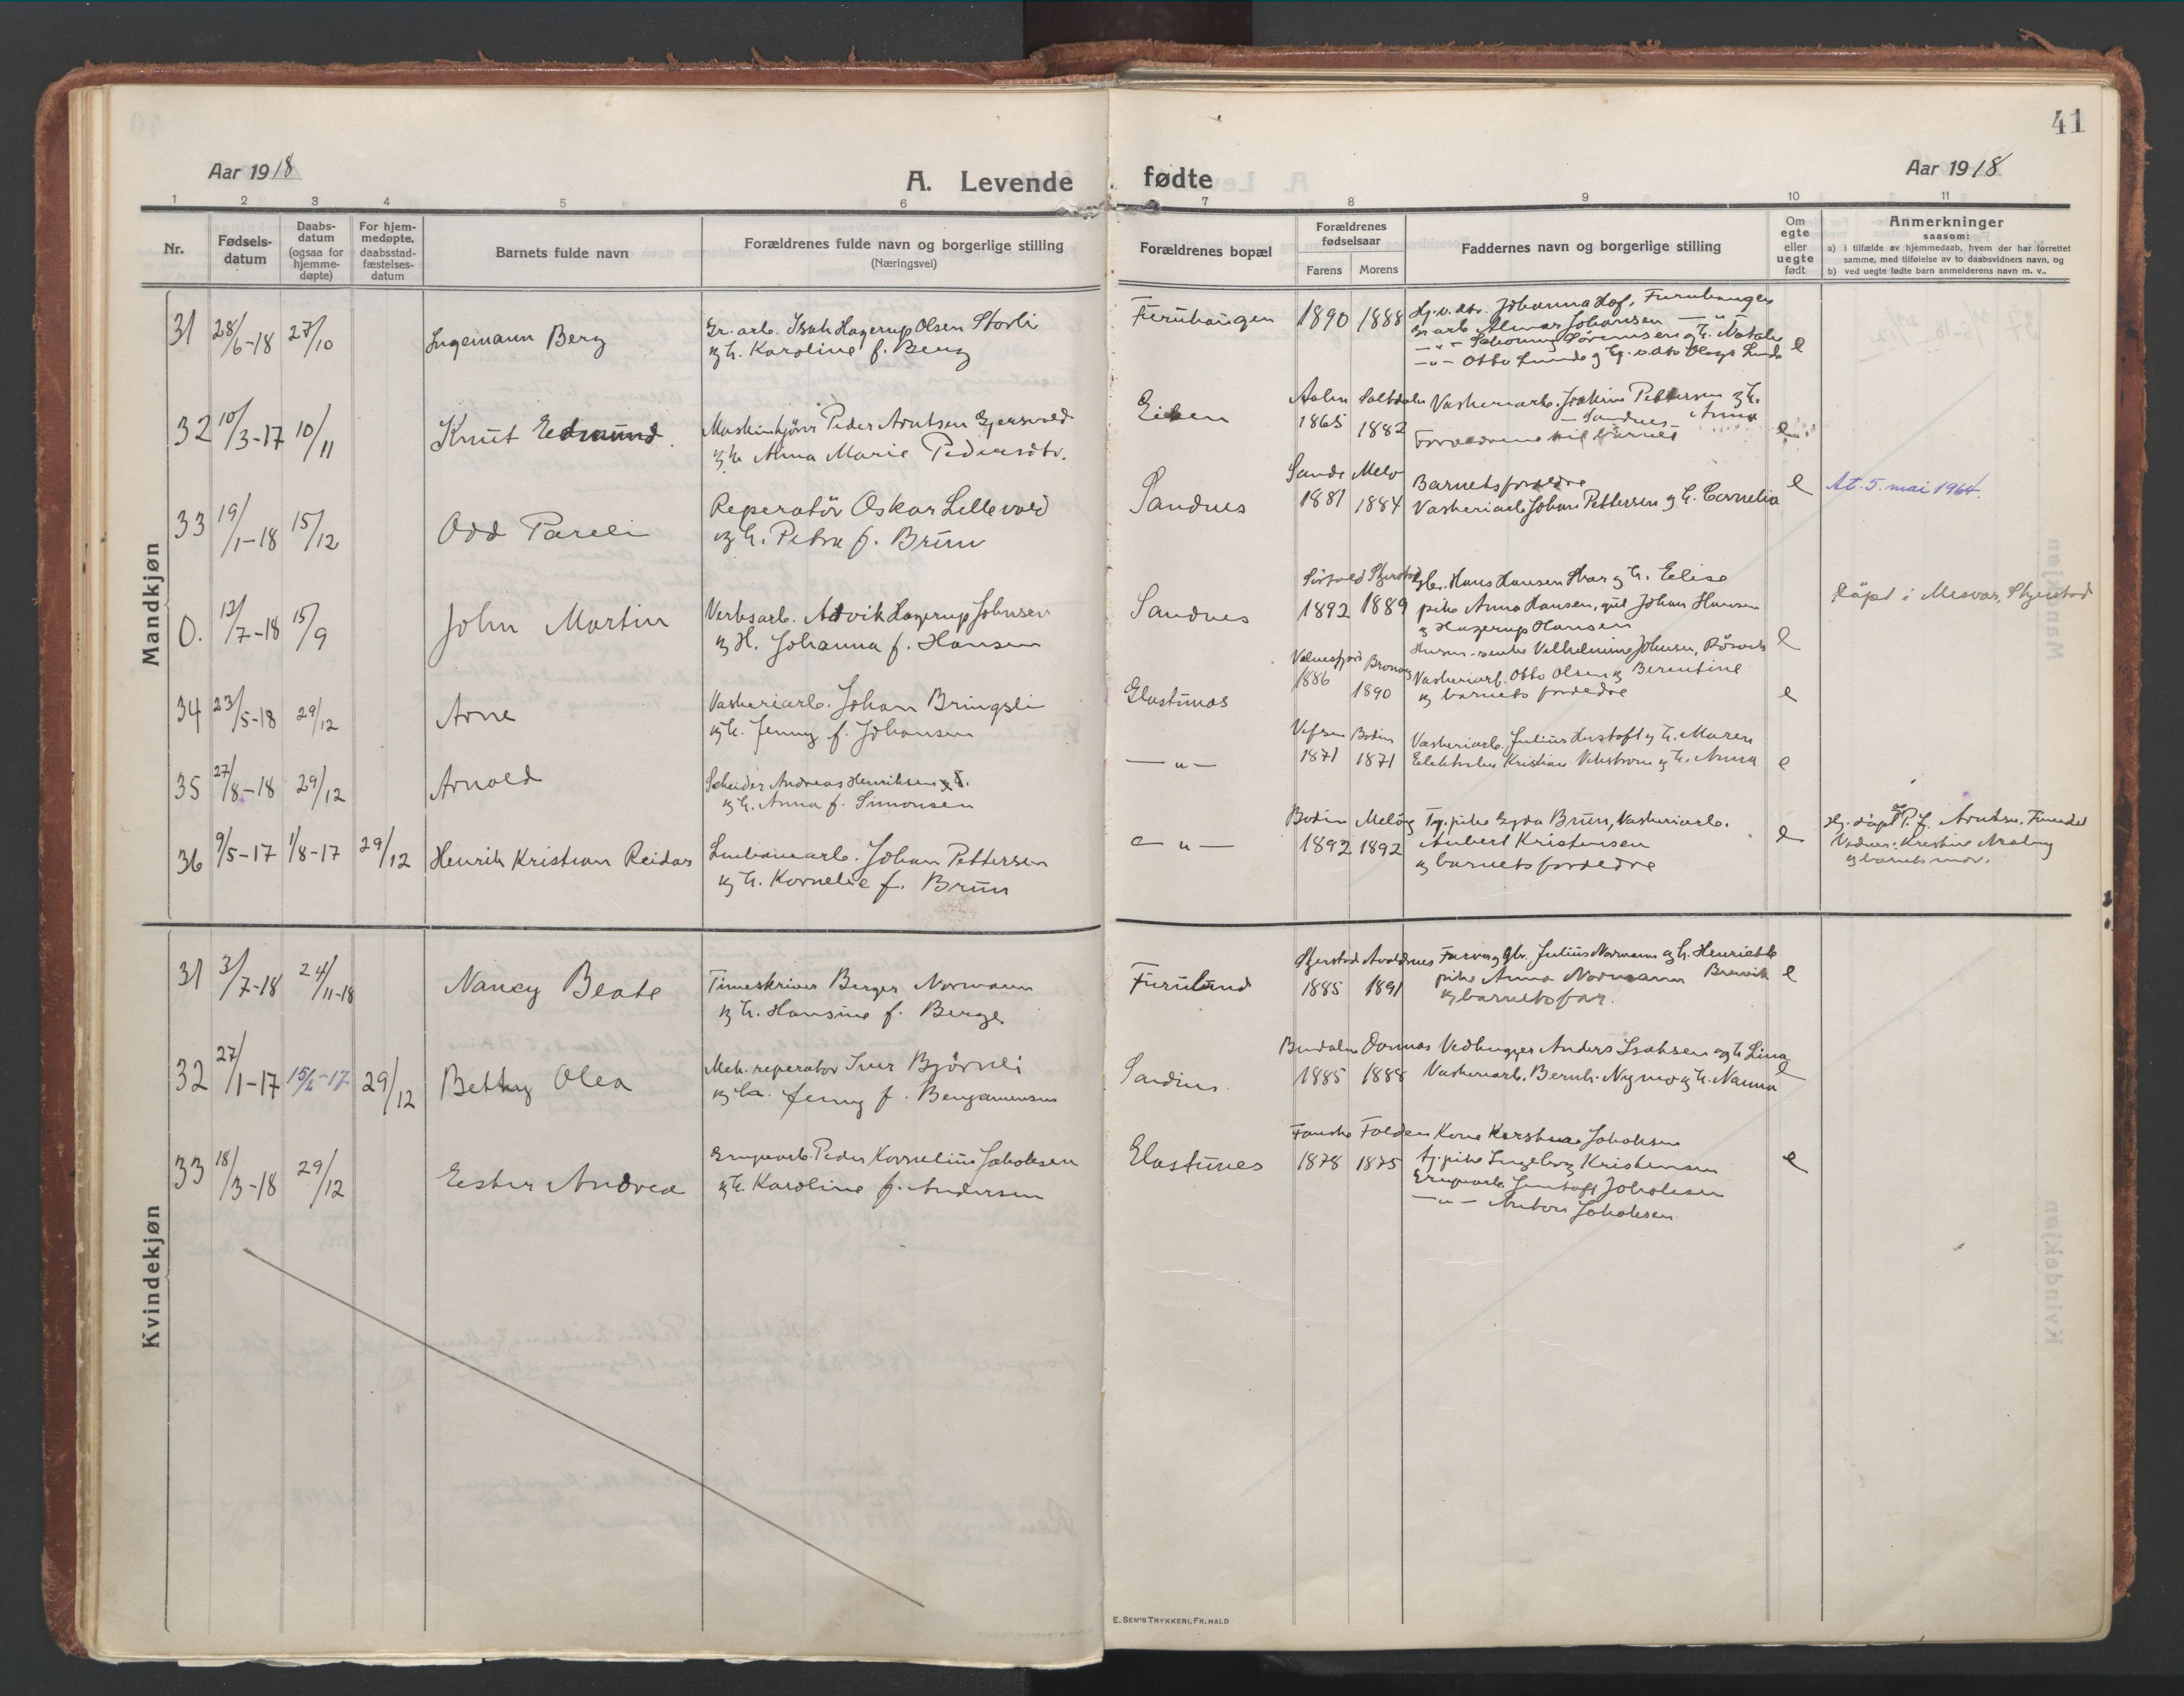 41
Aar 1918
A. Levende
fødte
Aar 1918
1 2 3 4 5 6 7 8 9 10 11
Nr.
Fødsels-
datum
Daabs-
datum
(ogsaa for
hjemme-
døpte)
For hjem-
medøpte,
daabsstad-
fæstelses-
datum
Barnets fulde navn
Forældrenes fulde navn og borgerlige stilling
(Næringsvei)
Forældrenes bopæl
Forældrenes
fødselsaar
Farens Morens
Faddernes navn og borgerlige stilling
Om
egte
eller
uegte
født
Anmerkninger
saasom:
a) i tilfælde av hjemmedaab, hvem der har forrettet
samme, med tilføielse av to daabsvidners navn, og
b) ved uegte fødte barn anmelderens navn m. v..
Mandkjøn
31 28/6-18 27/10 Ingemann Berg
Gr. arb. Isak Hagerup Olsen Storli
og h. Karoline f. Berg
Furuhaugen 1890 1888
Johanna Hof, Furuhaugen
Gr. arb. Almar Johansen — " —
— " — Sørensen og h. Natalie
— " — Otto Lunde og Lunde
e
32 10/3-17 10/11 Knut Edmund.
Maskinkjører Peder Arntsen Gjersvold
og h. Anna Marie Pedersdtr.
1865 1882
Vaskeriarb. Joakim Pettersen og h.
— Sandnes — Anna
Forældrene til barnet
e
33 19/1-18 15/12 Odd Pareli
Reperatør Oskar Lillevold
og h. Petra f. Brun
Sandnes
Melø
1881 1884
Barnets forældre
Vaskeriarb. Johan Pettersen og h. Cornelia
e
At. 5. mai 1964.
0. 12/7-18 15/9 John Martin
Verksarb. Advik Hagerup Johnsen
og H. Johanna f. Hansen
Sandnes
1892 1889
Hans Hansen og h. Elise
pike Anna Hansen, Johan Hansen
og Hagerup Hansen
Vilhelmine Johnsen,
e
Døpt i Misvær, Skjerstad
34 23/5-18 29/12 Arne
Vaskeriarb. Johan Bringsli
og h. Jenny f. Johansen
Glastunes
1886 1890
Vaskeriarb. Otto Olsen og Berentine
og barnets forældre
e
35 27/8-18 29/12 Arnold
Scheider Andreas Henriksen
og h. Anna f. Simonsen
— " —
Vefsen Bodin
1871 1871
Vaskeriarb. Julius Gustafl og h. Maren
Kristian og h. Anna
e
36 9/5-17 1/8-17 29/12 Henrik Kristian Reidar
Linbanearb. Johan Pettersen
og h. Kornelie f. Brun
— " —
Bodin Meløy
1892 1892
Tj. pike Gyda Brun, Vaskeriarb.
Anbert Kristensen
og barnets forældre
e
Hj. døpt av P. J. Arntsen, Finneid
Vidner: Kristine
og barnets mor.
Kvindekjøn
31 3/7-18 24/11-18 Nancy Beate
Timeskriver Berger Normann
og h. Hansine f. Berge
Furulund
Skjerstad
1885 1891
Julius Normann og h. Henriette
pike Anna Normann Brevik
og barnets far.
e
32 27/1-17 29/12 Betty Olea
Mek. reperatør Iver Bjørnli
og h. Jenny f. Benjaminsen
Bindalen Dønnes
1885 1888
Vedhugger Anders Isaksen og h. Lina
Vaskeriarb. Bernh. Nymo og h. Nanna
e
33 18/3-18 29/12 Ester Andrea
Grupearb. Peder Kornelius Jakobsen
og h. Karoline f. Andersen
Glastunes
Fauske Folden
1878 1875
Kone Jakobsen
tj. pike Ingeborg Kristensen
Grupearb. Gustaf Jakobsen
— " — Anton Jakobsen
e
E. SEM'S TRYKKERI, FR.HALD